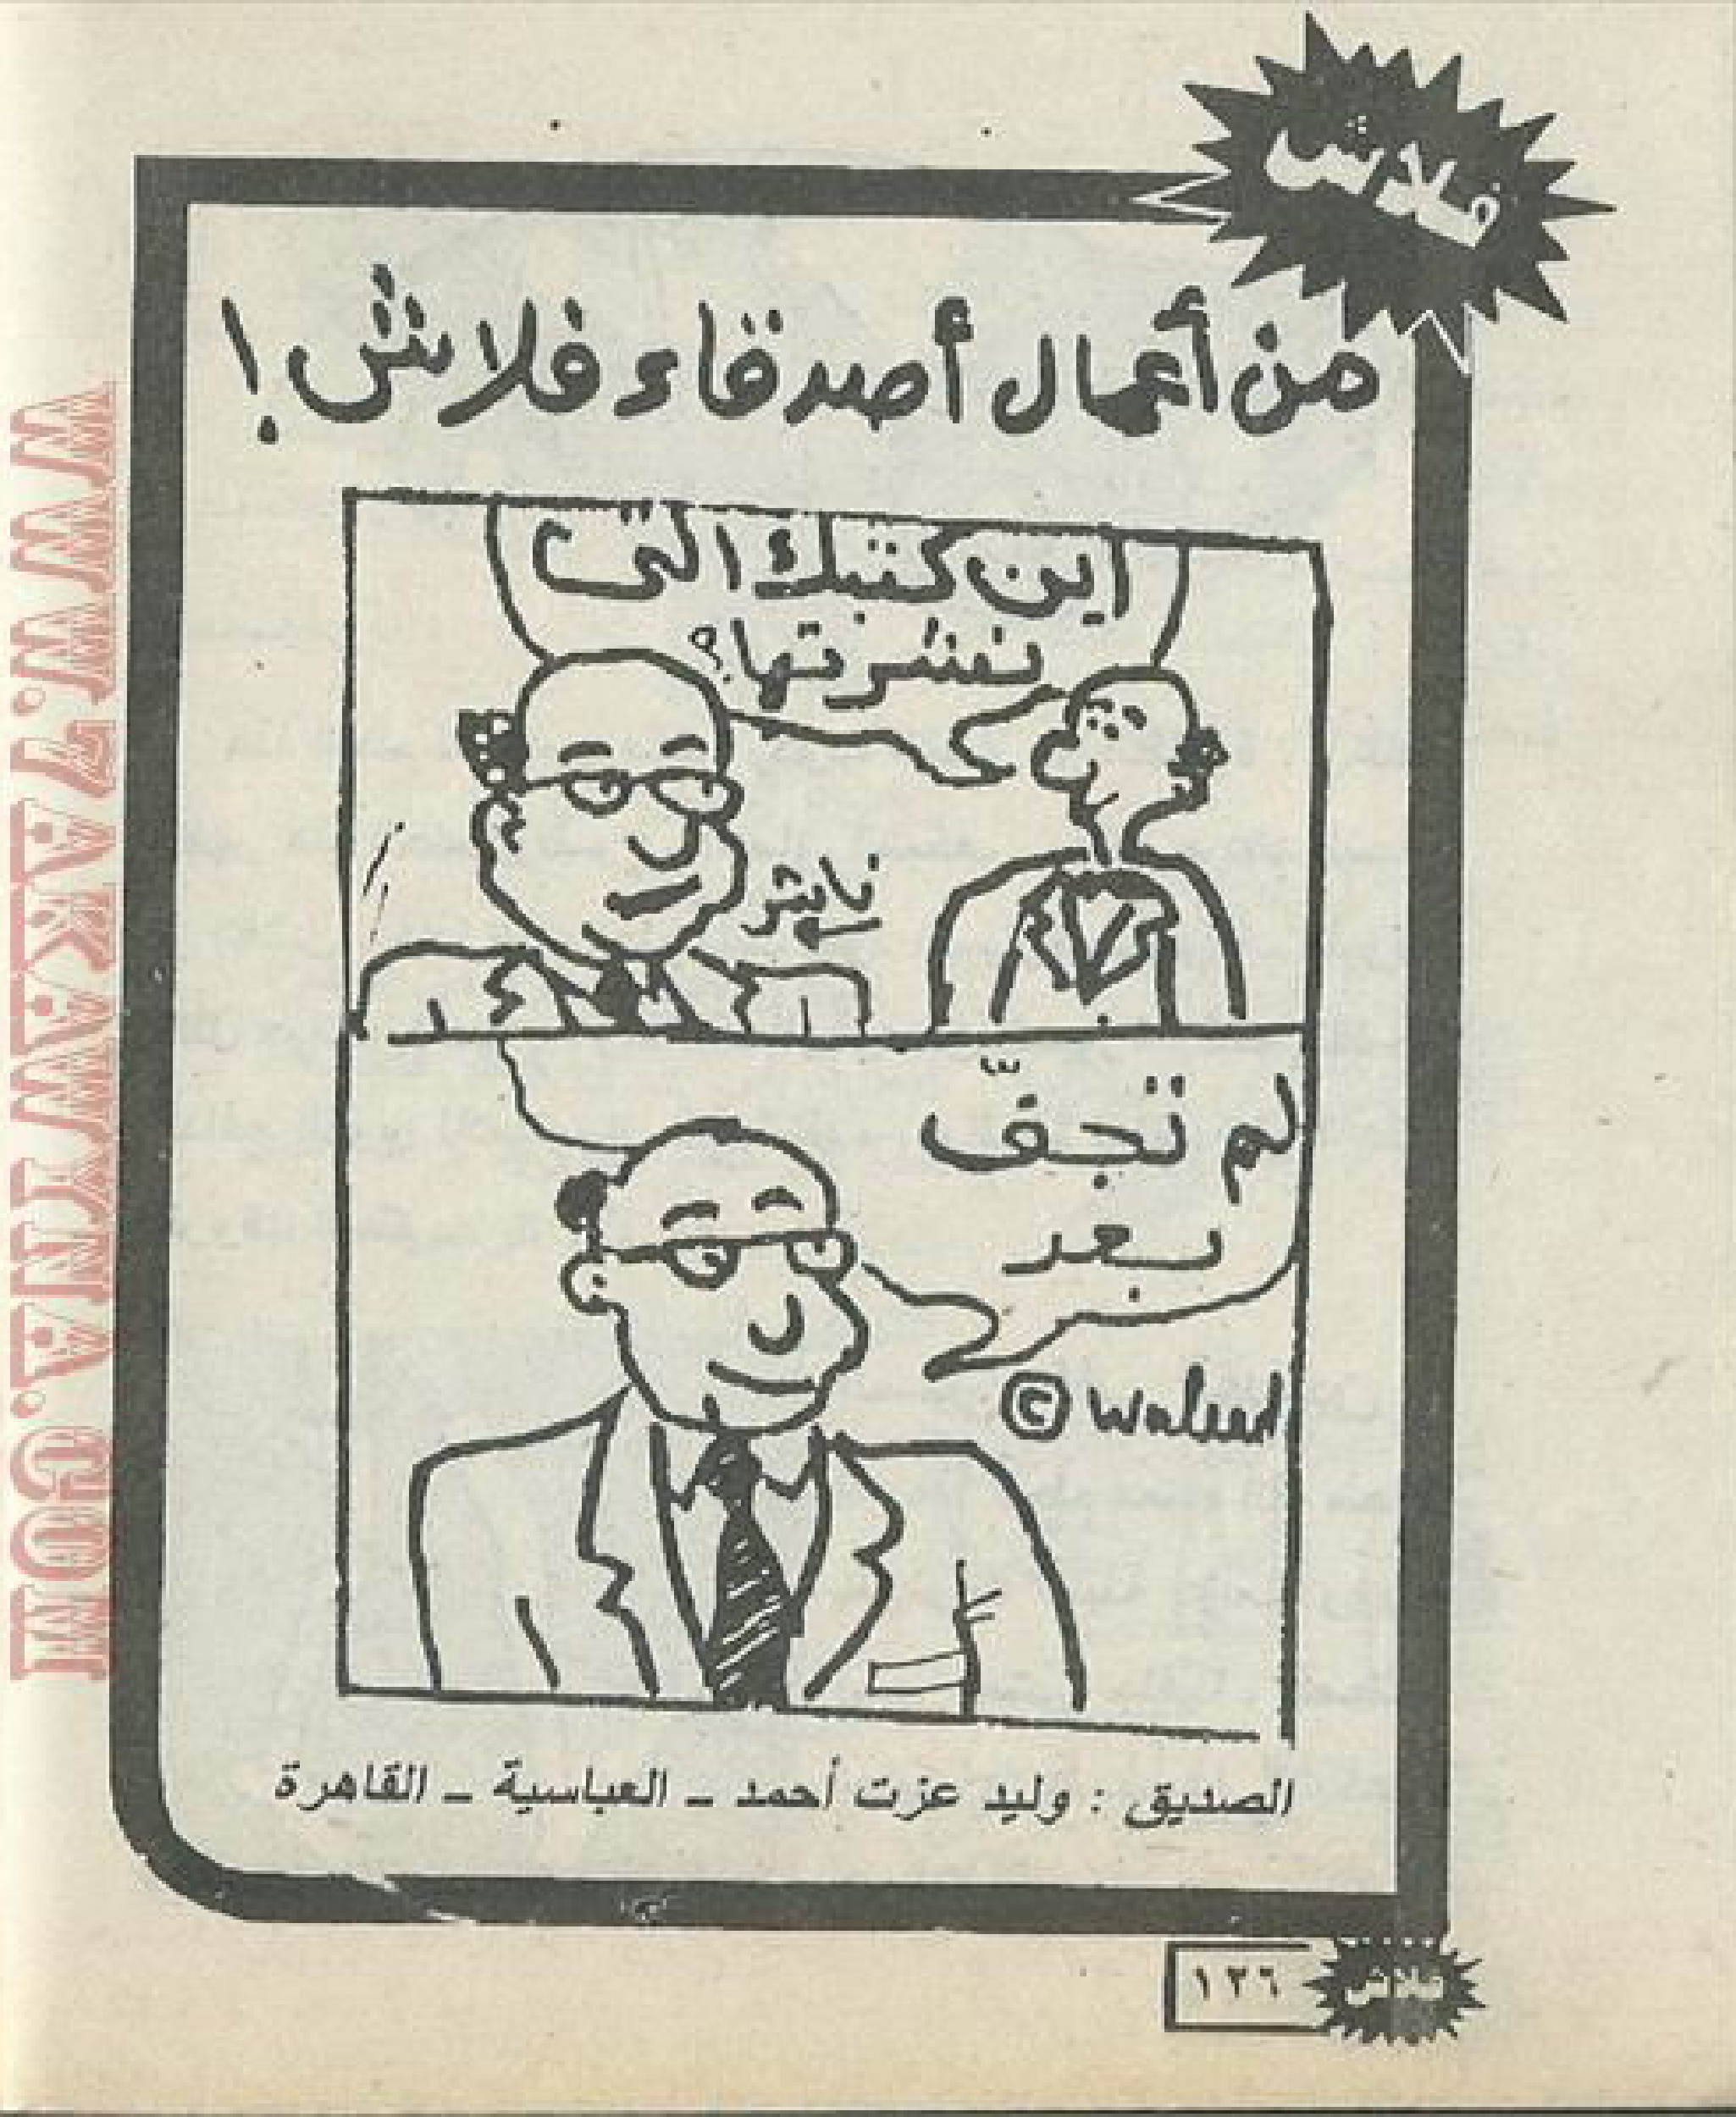 فلاش
من أعمال أصدقاء فلاش!
اين كتبك التى
نشرتها؟
ناشر
لم تجفّ
بعد
© Waleed
الصديق : وليد عزت أحمد ـ العباسية ـ القاهرة
١٢٦
فلاش
WWW.7AKAWYNA.COM